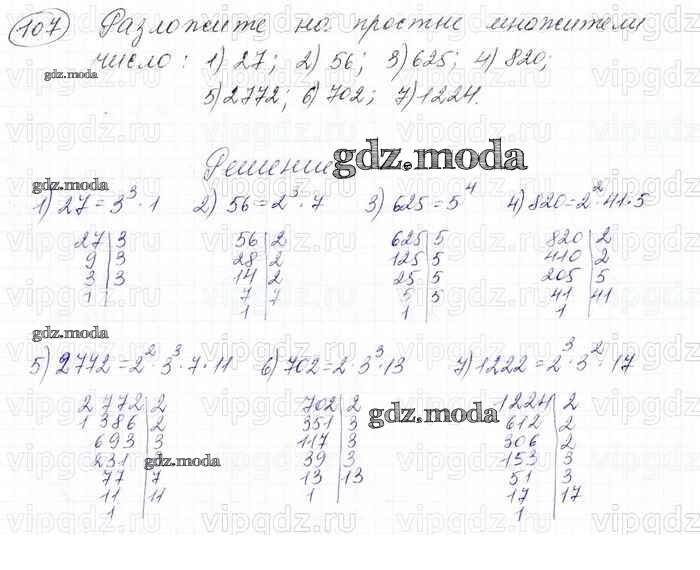 107 Разложите на простые множители
число: 1) 27; 2) 56; 3) 625; 4) 820;
5) 2772; 6) 702; 7) 1224.
Решение
1) 27 = 3³ · 1 2) 56 = 2³ · 7 3) 625 = 5⁴ 4) 820 = 2² · 41 · 5
27 | 3 56 | 2 625 | 5 820 | 2
9 | 3 28 | 2 125 | 5 410 | 2
3 | 3 14 | 2 25 | 5 205 | 5
1 | 7 | 7 5 | 5 41 | 41
1 | 1 | 1 |
5) 2772 = 2² · 3³ · 7 · 11 6) 702 = 2 · 3³ · 13 7) 1222 = 2³ · 3² · 17
2772 | 2 702 | 2 1224 | 2
1386 | 2 351 | 3 612 | 2
693 | 3 117 | 3 306 | 2
231 | 39 | 3 153 | 3
77 | 7 13 | 13 51 | 3
11 | 11 1 | 17 | 17
1 | 1 |
gdz.moda
gdz.moda
gdz.moda
gdz.moda
gdz.moda
gdz.moda
vipgdz.ru